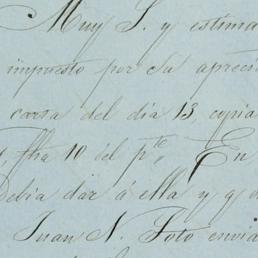 Muy S. y estima
impuesto por su apreci
carta del dia 13, copia
fha 10 del pte, En
Debia dar á ella y q d
Juan N. Soto envia